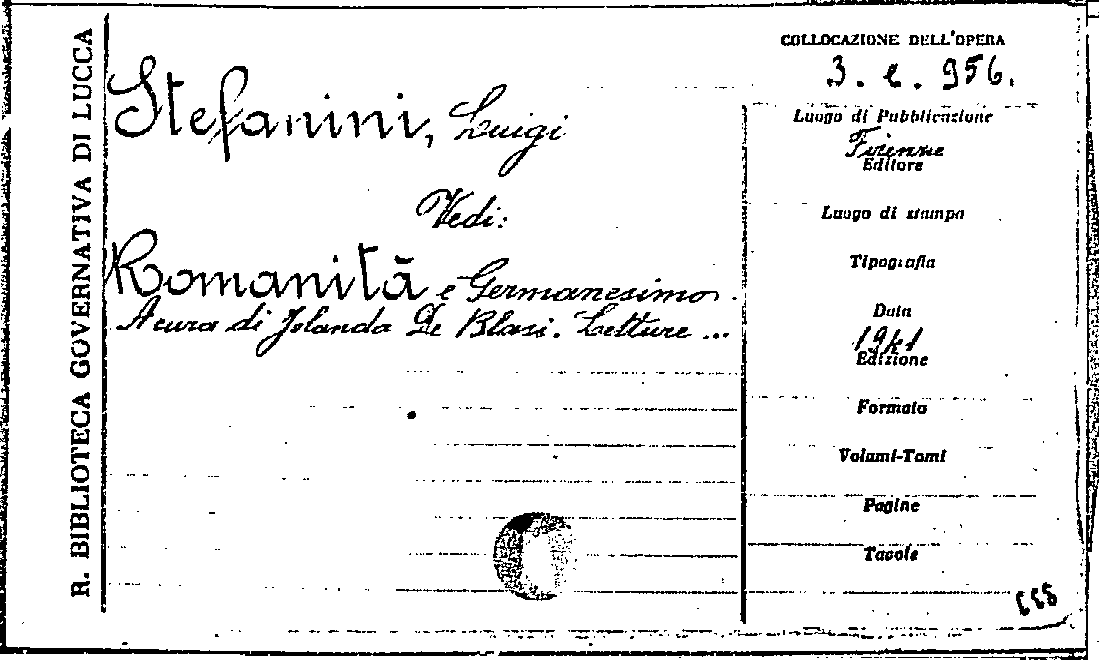 R. BIBLIOTECA GOVERNATIVA DI LUCCA
Stefanini, Luigi
Vedi:
Romanità e Germanesimo.
A cura di Jolanda De Blasi. Letture ...
COLLOCAZIONE DELL'OPERA
3. e. 956.
Luogo di Pubblicazione
Firenze
Editore
Luogo di stampa
Tipografia
Data
1941
Edizione
Formato
Volumi-Tomi
Pagine
Tavole